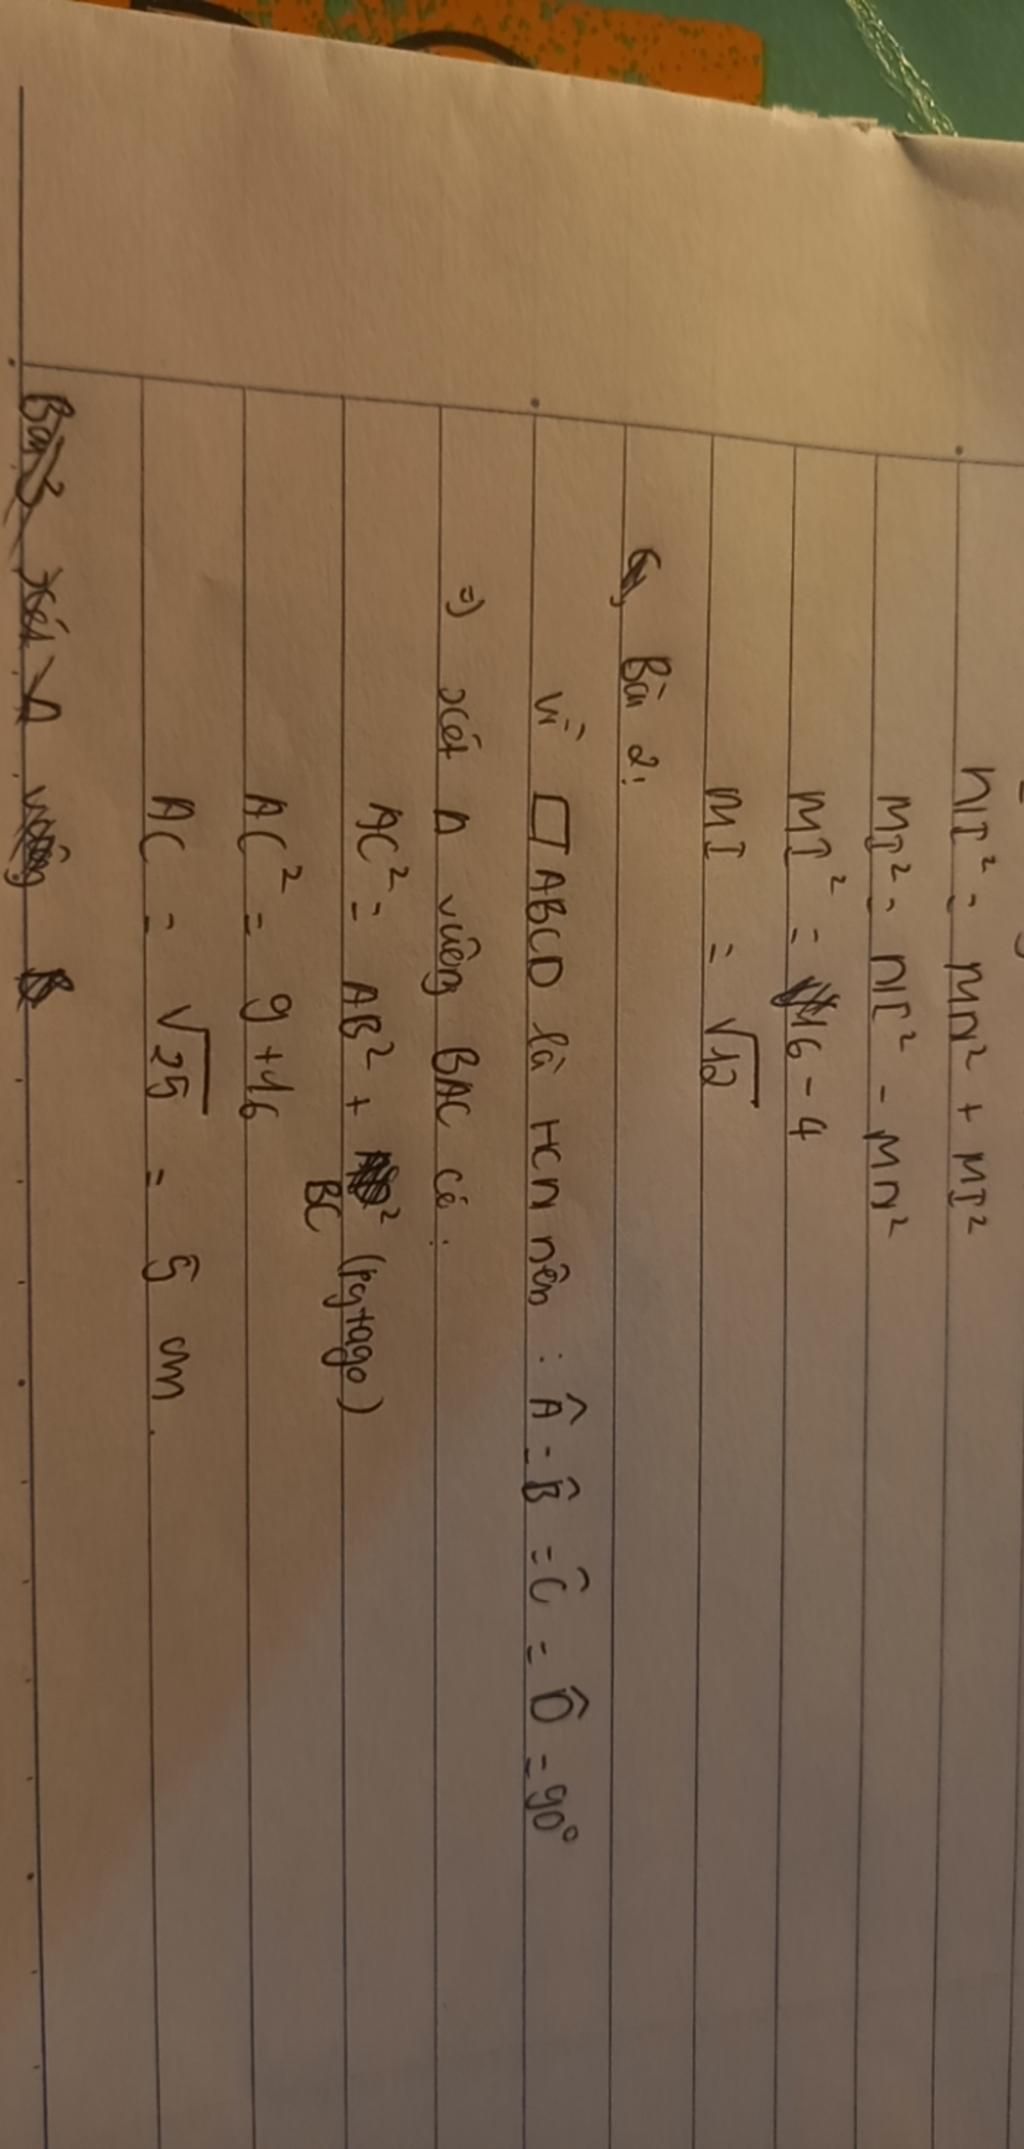 NI² = MN² + MI²
MI² = NI² - MN²
MI² = 16 - 4
MI = √12
Bài 2:
Vì □ABCD là HCN nên : Â = B̂ = Ĉ = D̂ = 90°
=) xét Δ vuông BAC có :
AC² = AB² + BC² (pytago)
AC² = 9 + 16
AC = √25 = 5 cm.
Bài 3 xét Δ vuông B